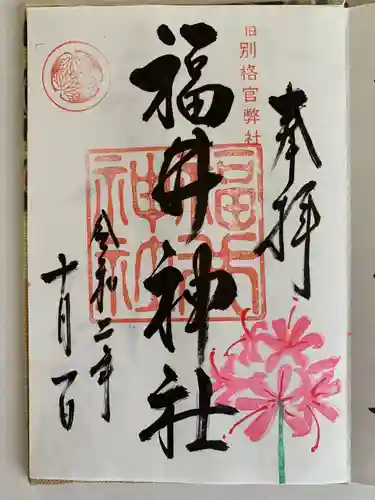 奉拝
旧別格官弊社
福井神社
令和二年
十月一日
福井神社